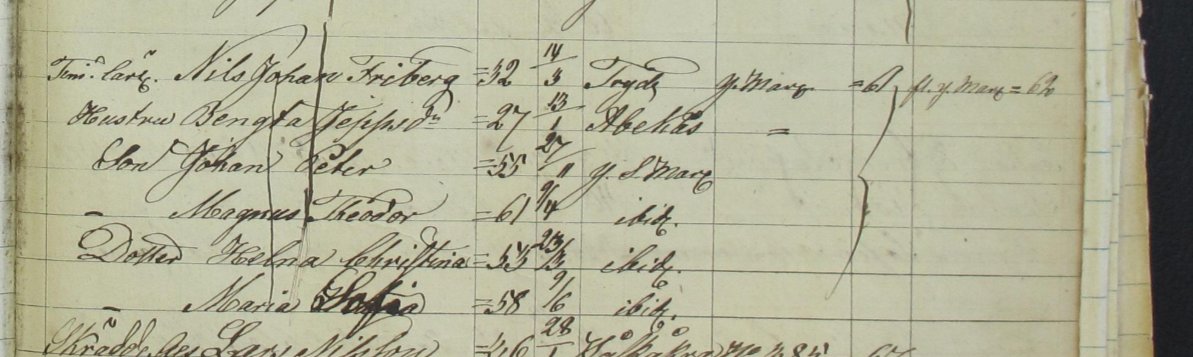 Tim. Carl. Nils Johan Friberg =32 14/3 Tryde y. Marg =61 fl. y. Marg = 62
Hustru Bengta Jeppsdr =27 13/1 Abekås =
Son Johan Peter =55 27/11 y. S. Marg
- Magnus Theodor =61 9/4 ibid.
Dotter Helna Christina =53 ibid.
- Maria Sofia =58 9/6 ibid.
Lars Nilsson =46 28/1